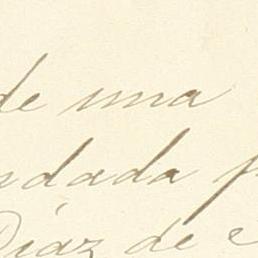 de una
ndada p
Díaz de